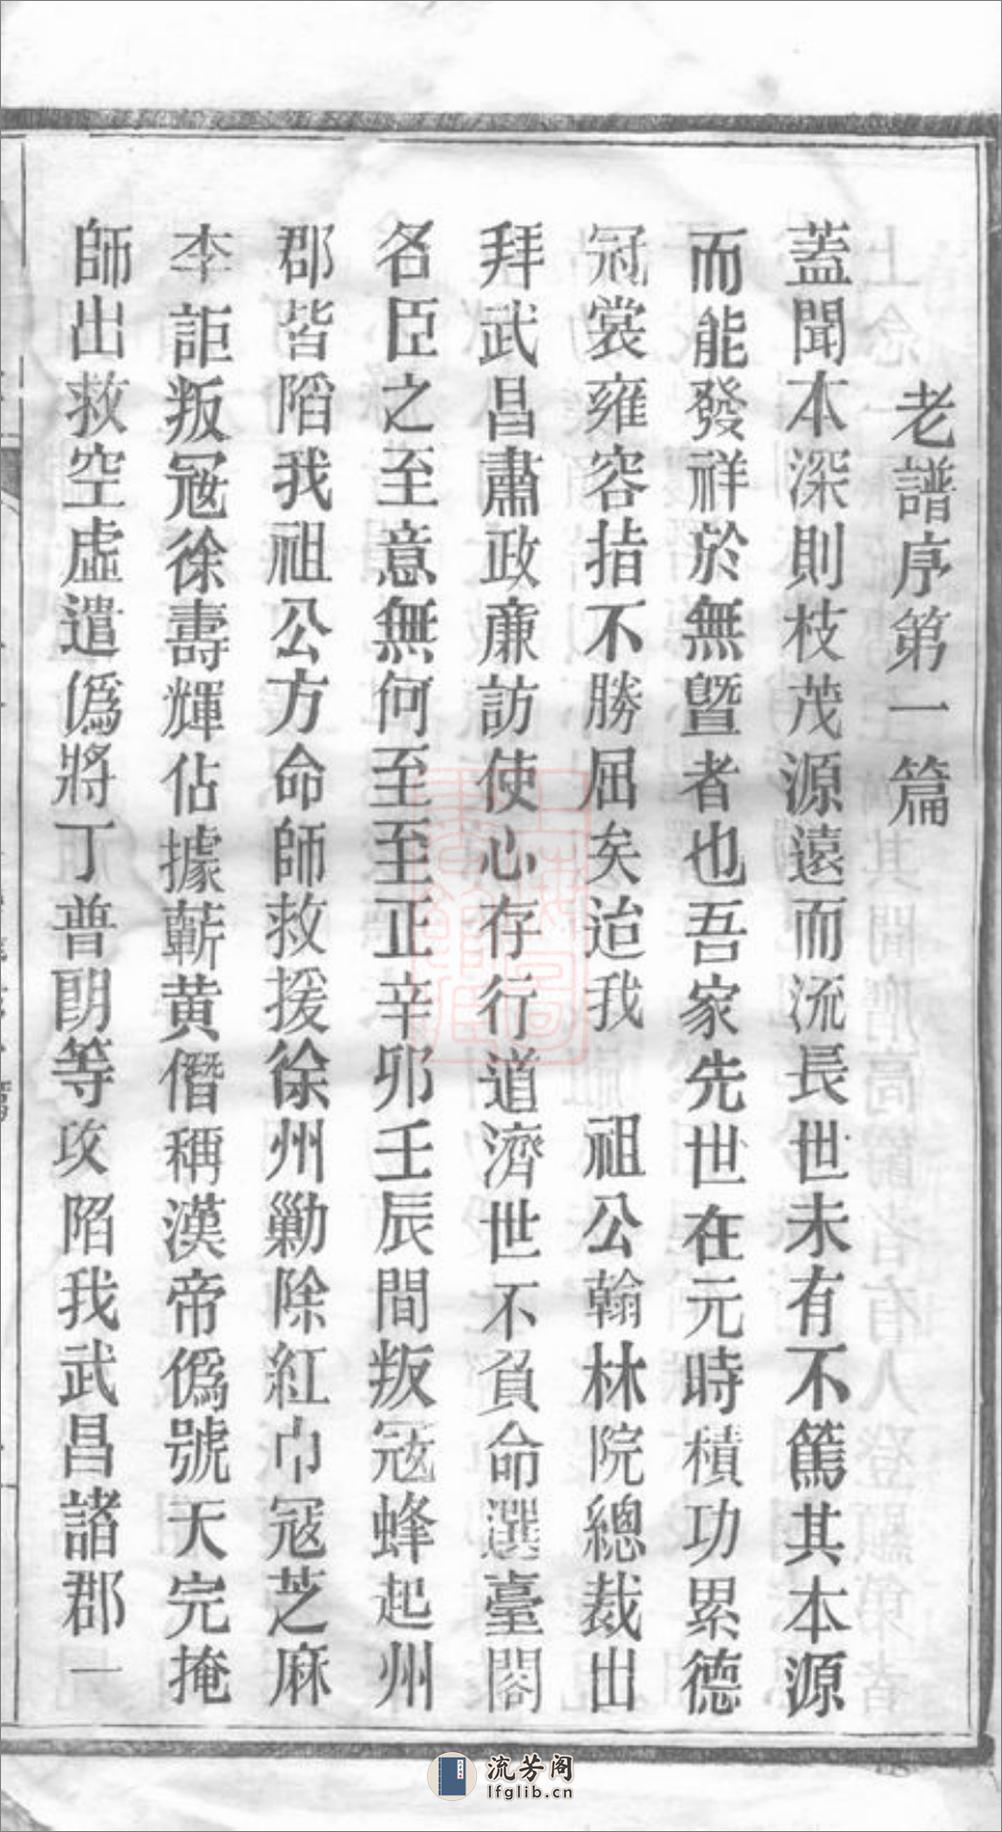 老譜序第一篇
蓋聞本深則枝茂源遠而流長世未有不篤其本源
而能發祥於無暨者也吾家先世在元時積功累德
冠裳雍容指不勝屈矣迨我　祖公翰林院總裁出
拜武昌肅政廉訪使心存行道濟世不負命選臺閣
名臣之至意無何至至正辛卯壬辰間叛冦蜂起州
郡皆陷我祖公方命師救援徐州勦除紅巾冦芝麻
李詎叛冦徐壽輝佔據蘄黃僭稱漢帝偽號天完掩
師出救空虛遣偽將丁普朗等攻陷我武昌諸郡一
流芳阁
lfglib.cn